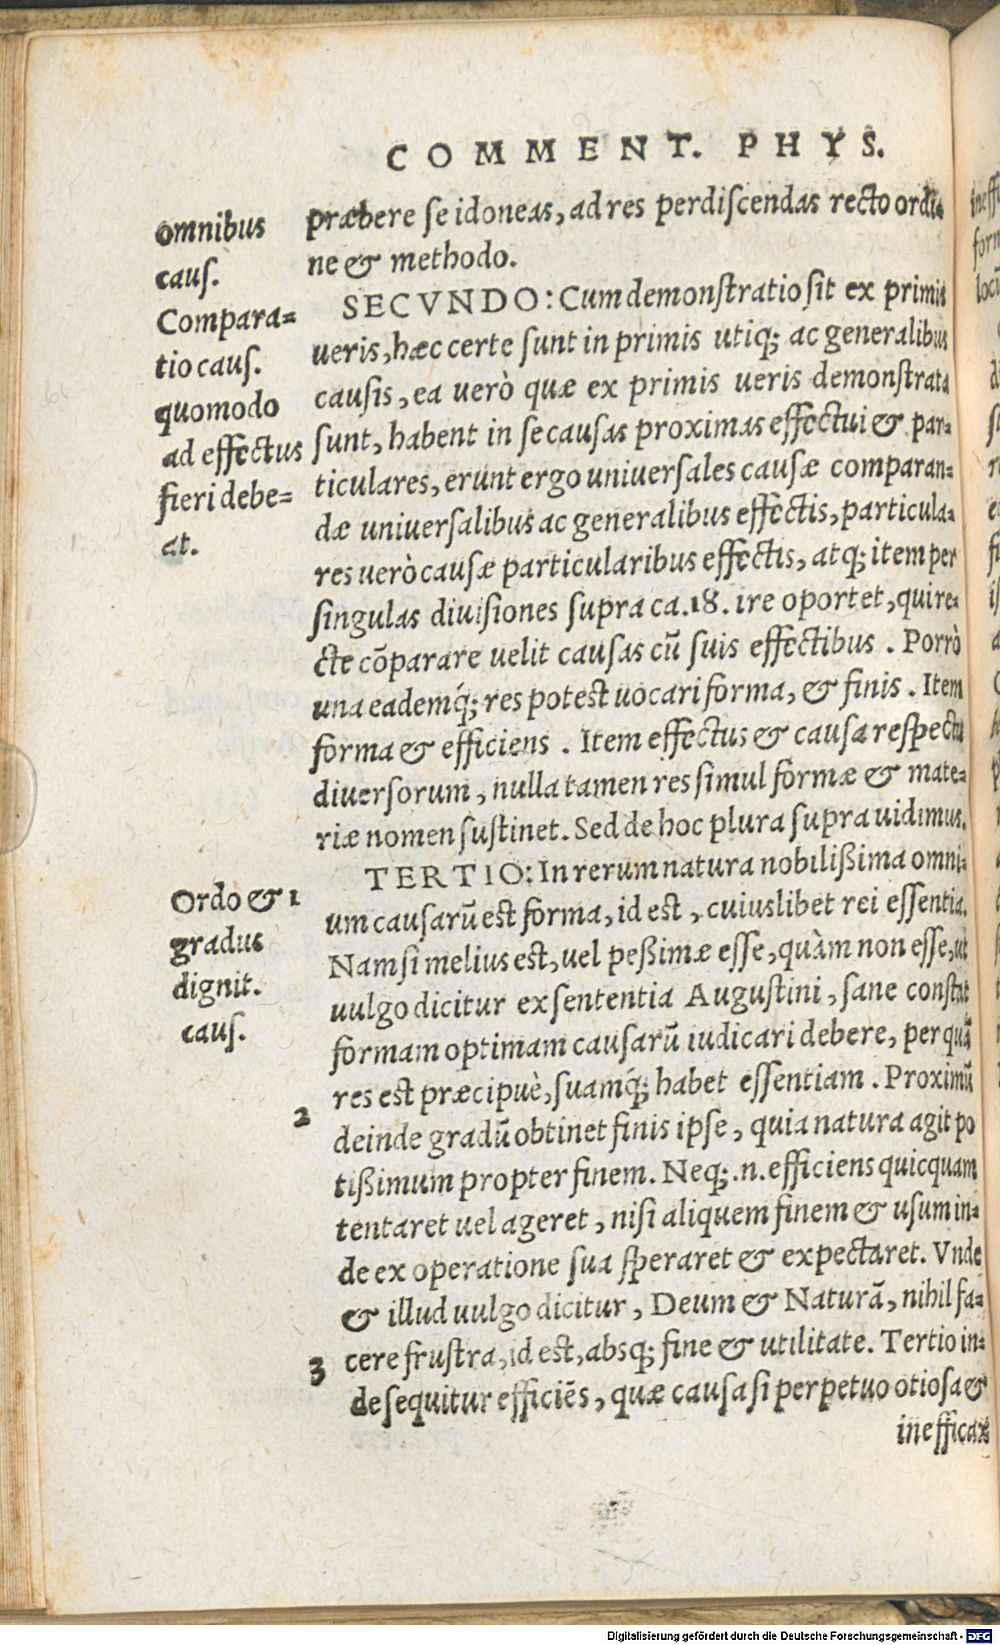 COMMENT. PHYS.
omnibus
cauſ.
Compara=
tio cauſ.
quomodo
ad effectus
fieri debe=
at.
præbere ſe idoneas, ad res perdiſcendas recto ordi=
ne & methodo.
SECVNDO: Cum demonſtratio ſit ex primis
ueris, hæc certe ſunt in primis utiq; ac generalibus
cauſis, ea uerò quæ ex primis ueris demonſtrata
ſunt, habent in ſe cauſas proximas effectui & par=
ticulares, erunt ergo uniuerſales cauſæ comparan=
dæ uniuerſalibus ac generalibus effectis, particula=
res uerò cauſæ particularibus effectis, atq; item per
ſingulas diuiſiones ſupra ca.18. ire oportet, qui re=
cte cōparare uelit cauſas cū ſuis effectibus. Porrò
una eademq́; res poteſt uocari forma, & finis. Item
forma & efficiens. Item effectus & cauſa reſpectu
diuerſorum, nulla tamen res ſimul formæ & mate=
riæ nomen ſuſtinet. Sed de hoc plura ſupra uidimus.
Ordo & 1
gradus
dignit.
cauſ.
TERTIO: In rerum natura nobilißima omni=
um cauſarū eſt forma, id eſt, cuiuslibet rei eſſentia.
Nam ſi melius eſt, uel peßimæ eſſe, quàm non eſſe, ut
uulgo dicitur ex ſententia Auguſtini, ſane conſtat
formam optimam cauſarū iudicari debere, per quā
res eſt præcipuè, ſuamq́; habet eſſentiam. Proximū
2
deinde gradū obtinet finis ipſe, quia natura agit po
tißimum propter finem. Neq; .n. efficiens quicquam
tentaret uel ageret, niſi aliquem finem & uſum in=
de ex operatione ſua ſperaret & expectaret. Vnde
& illud uulgo dicitur, Deum & Naturā, nihil fa=
3
cere fruſtra, id eſt, absq; fine & utilitate. Tertio in=
de ſequitur efficiēs, quæ cauſa ſi perpetuo otioſa &
inefficax
Digitalisierung gefördert durch die Deutsche Forschungsgemeinschaft - DFG